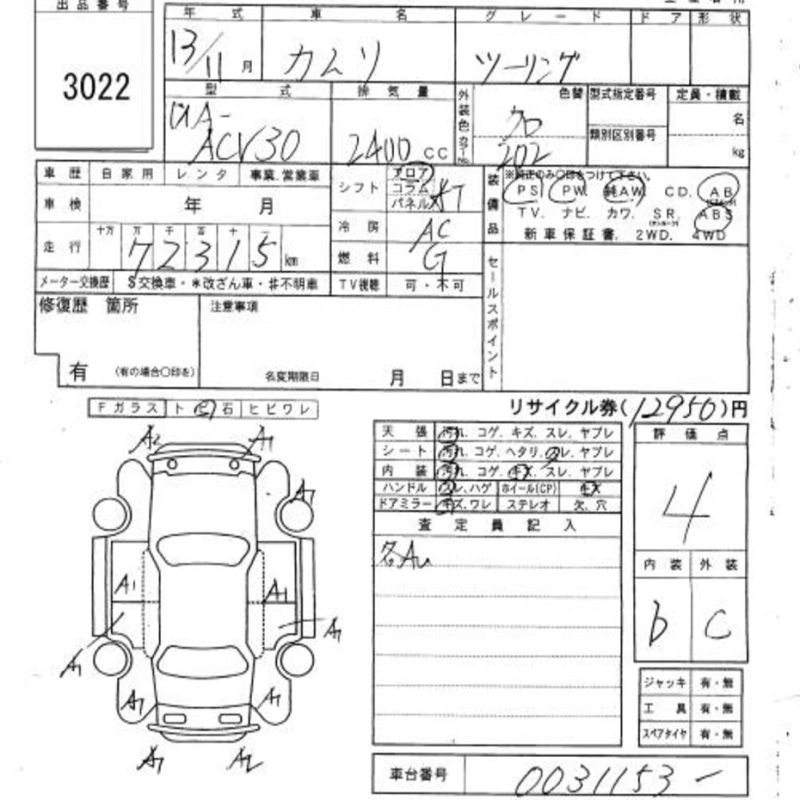 出品番号
3022
年式 車名 グレード ドア 形状
13/11月 カムリ ツーリング
型式 排気量 外装色 色替 型式指定番号 定員・積載
ACV30 2400cc クロ 202 類別区別番号 名 kg
車歴 自家用 レンタ 事業.営業車
車検 年 月
走行 十万 万 千 百 十 一
72315km
メーター交換歴 S交換車・*改ざん車・#不明車
シフト フロア コラム パネル AT
冷房 AC
燃料 G
TV視聴 可・不可
装備品 ※純正のみ○印をつけて下さい。
PS PW. 純AW CD. AB
TV. ナビ. カワ. SR. ABS
新車保証書. 2WD. 4WD
セールスポイント
修復歴 箇所 注意事項
有 (有の場合○印を) 名変期限日 月 日まで
リサイクル券(12950)円
Fガラス トビ石 ヒビワレ
天張 汚れ. コゲ. キズ. スレ. ヤブレ
シート 汚れ. コゲ. ヘタリ. スレ. ヤブレ
内装 汚れ. コゲ. キズ. スレ. ヤブレ
ハンドル スレ. ハゲ ホイール(CP) キズ
ドアミラー キズ. ワレ ステレオ 欠. 穴
査定員記入
評価点
4
内装 外装
b C
A2 A1
A1
A1 A1
A1 A1
A1 A1
A1 A2
ジャッキ 有・無
工具 有・無
スペアタイヤ 有・無
車台番号 0031153